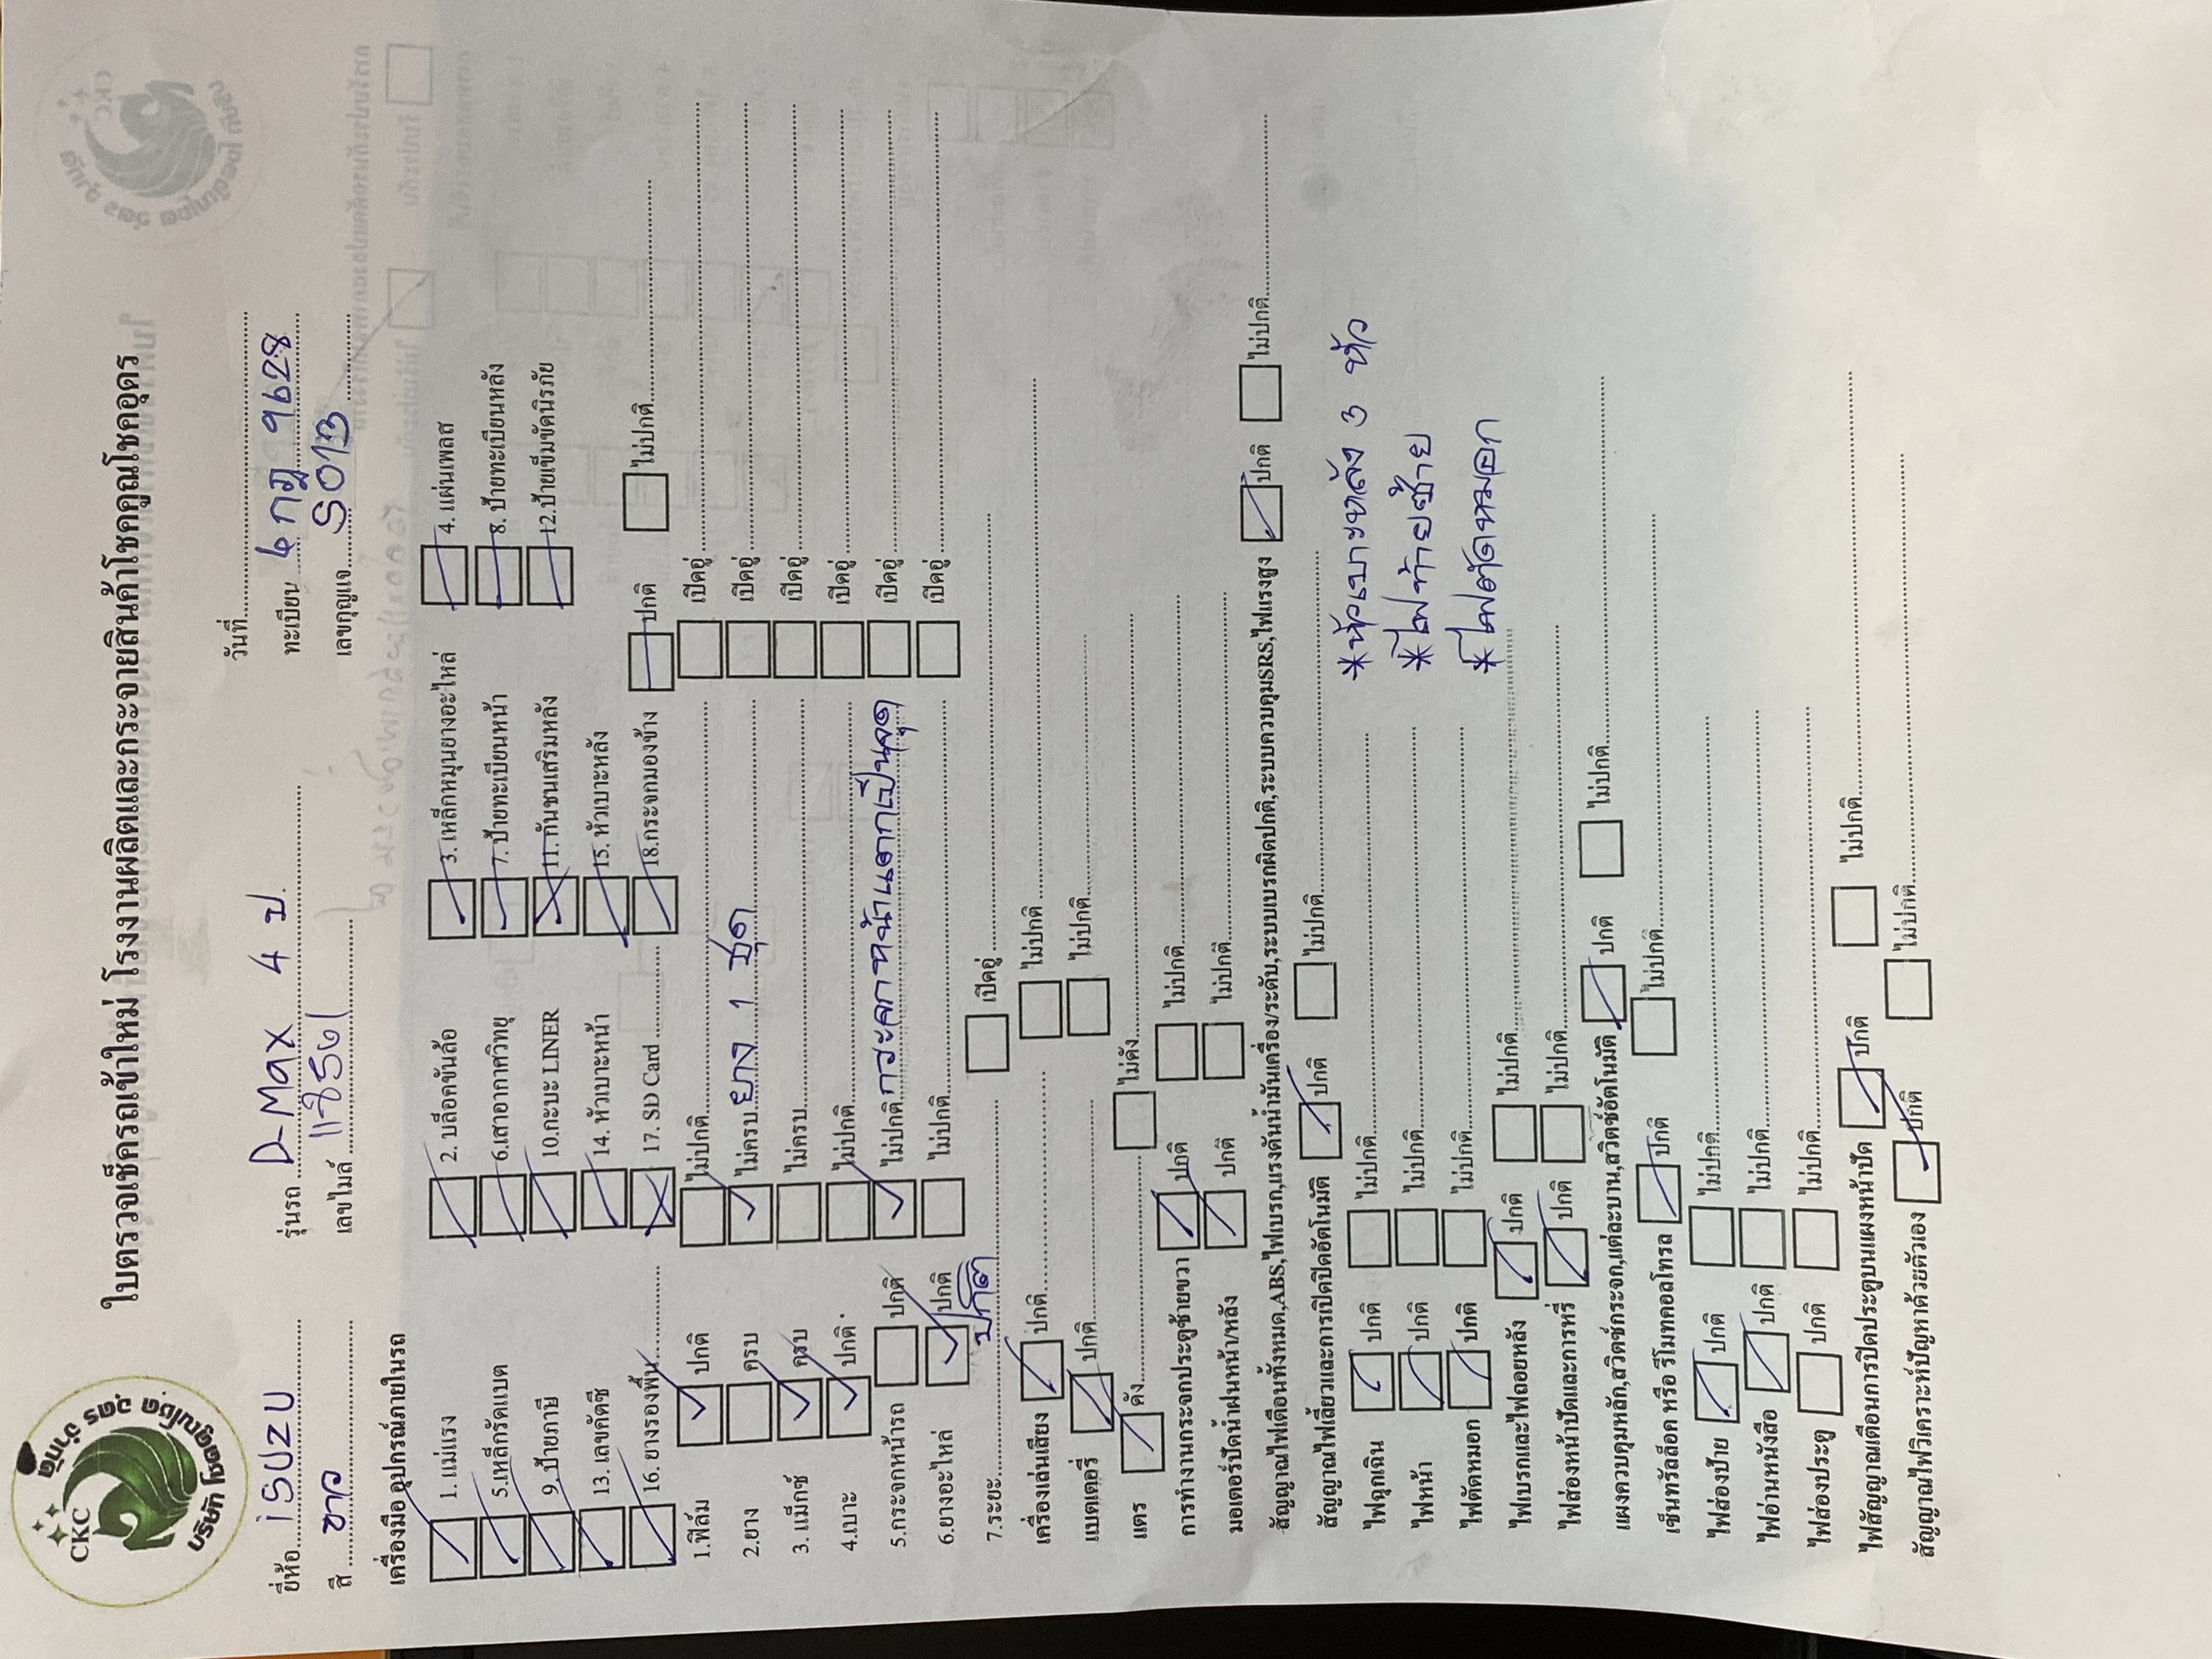 บริษัท โชคคูณโชค อุดร จำกัด
CKC
ใบตรวจเช็ครถเข้าใหม่ โรงงานผลิตและกระจายสินค้าโชคคูณโชคอุดร
วันที่
ยี่ห้อ iSUZU รุ่นรถ D-Max 4 ป. ทะเบียน 9628
สี ขาว เลขไมล์ เลขกุญแจ S013
เครื่องมือ อุปกรณ์ภายในรถ
1. แม่แรง 2. บล็อคขันล้อ 3. เหล็กหมุนยางอะไหล่ 4. แผ่นเพลส
5.เหล็กรัดแบต 6.เสาอากาศวิทยุ 7. ป้ายทะเบียนหน้า 8. ป้ายทะเบียนหลัง
9. ป้ายภาษี 10.กะบะ LINER 11. กันชนเสริมหลัง 12.ป้ายเข็มขัดนิรภัย
13. เลขคัตซี 14. หัวเบาะหน้า 15. หัวเบาะหลัง
16. ยางรองพื้น 17. SD Card 18.กระจกมองข้าง ปกติ ไม่ปกติ
1.ฟิล์ม ปกติ ไม่ปกติ เปิดอู่
2.ยาง ครบ ไม่ครบ ยาง 1 ชุด เปิดอู่
3. แม็กซ์ ครบ ไม่ครบ เปิดอู่
4.เบาะ ปกติ ไม่ปกติ เปิดอู่
5.กระจกหน้ารถ ปกติ ไม่ปกติ กระจกหน้าแตกเป็นจุด เปิดอู่
6.ยางอะไหล่ ปกติ ไม่ปกติ เปิดอู่
7.ระยะ ปกติ เปิดอู่
เครื่องเล่นเสียง ปกติ ไม่ปกติ
แบตเตอรี่ ปกติ ไม่ปกติ
แตร ดัง ไม่ดัง
การทำงานกระจกประตูซ้ายขวา ปกติ ไม่ปกติ
มอเตอร์ปัดน้ำฝนหน้า/หลัง ปกติ ไม่ปกติ
สัญญาณไฟเตือนทั้งหมด,ABS,ไฟเบรก,แรงดันน้ำมันเครื่อง/ระดับ,ระบบเบรกผิดปกติ,ระบบควบคุมSRS,ไฟแรงสูง ปกติ ไม่ปกติ
สัญญาณไฟเลี้ยวและการเปิดปิดอัตโนมัติ ปกติ ไม่ปกติ
ไฟฉุกเฉิน ปกติ ไม่ปกติ *หัวเบาะหลัง 3 หัว
ไฟหน้า ปกติ ไม่ปกติ *ไฟท้ายซ้าย
ไฟตัดหมอก ปกติ ไม่ปกติ *ไฟตัดหมอก
ไฟเบรกและไฟถอยหลัง ปกติ ไม่ปกติ
ไฟส่องหน้าปัดและการหรี่ ปกติ ไม่ปกติ
แผงควบคุมหลัก,สวิตช์กระจก,แต่ละบาน,สวิตช์อัตโนมัติ ปกติ ไม่ปกติ
เซ็นทรัลล็อค หรือ รีโมทคอลโทรล ปกติ ไม่ปกติ
ไฟส่องป้าย ปกติ ไม่ปกติ
ไฟอ่านหนังสือ ปกติ ไม่ปกติ
ไฟส่องประตู ปกติ ไม่ปกติ
ไฟสัญญาณเตือนการปิดประตูบนแผงหน้าปัด ปกติ ไม่ปกติ
สัญญาณไฟวิเคราะห์ปัญหาด้วยตัวเอง ปกติ ไม่ปกติ